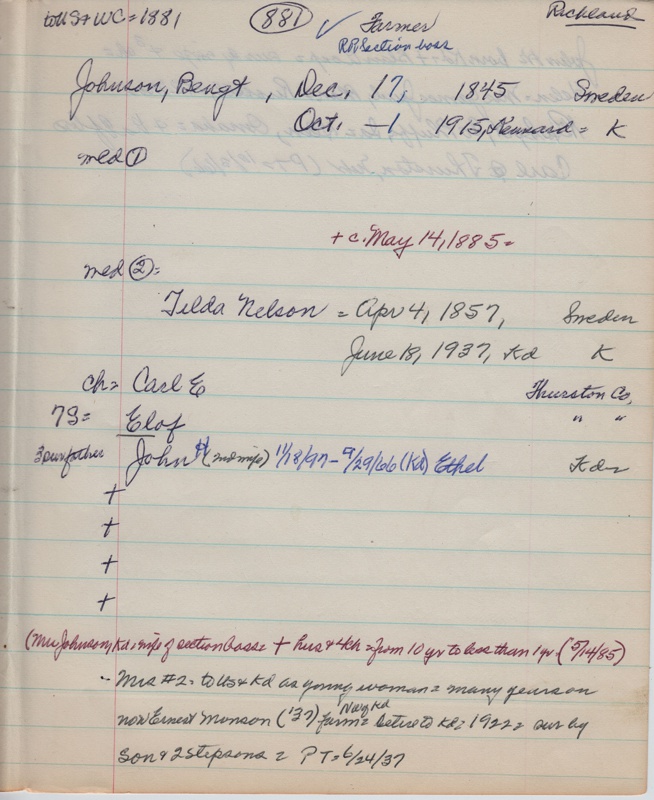 to US & WC = 1881 (881) ✓ Farmer Richland
RR Section boss
Johnson, Bengt, Dec. 17, 1845 Sweden
Oct. -1 1915, Kennard = K
med ①
+ c. May 14, 1885 =
med ② =
Tilda Nelson = Apr 4, 1857, Sweden
June 18, 1937, Kd K
ch = Carl E Thurston Co,
7S = Elof " "
3 sur father John H (2nd wife) 11/18/97 - 9/29/66 (Kd) Ethel Kd =
+
+
+
+
(Mrs Johnson, Kd = wife of section boss = + hus & 4 ch = from 10 yr to less than 1 yr - (5/14/85)
- Mrs #2 = to US & Kd as young woman = many years on
now Ernest Monson ('37) farm = Retire to Kd = 1922 = sur by
Nwy Kd
son & 2 stepsons = PT = 6/24/37